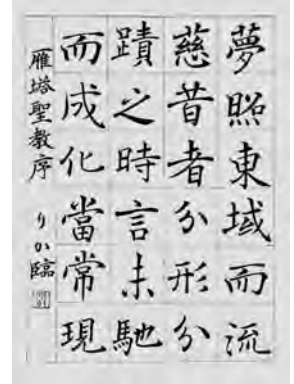 夢照東域而流
慈昔者分形分
蹟之時言未馳
而成化當常現
雁塔聖教序 りか臨